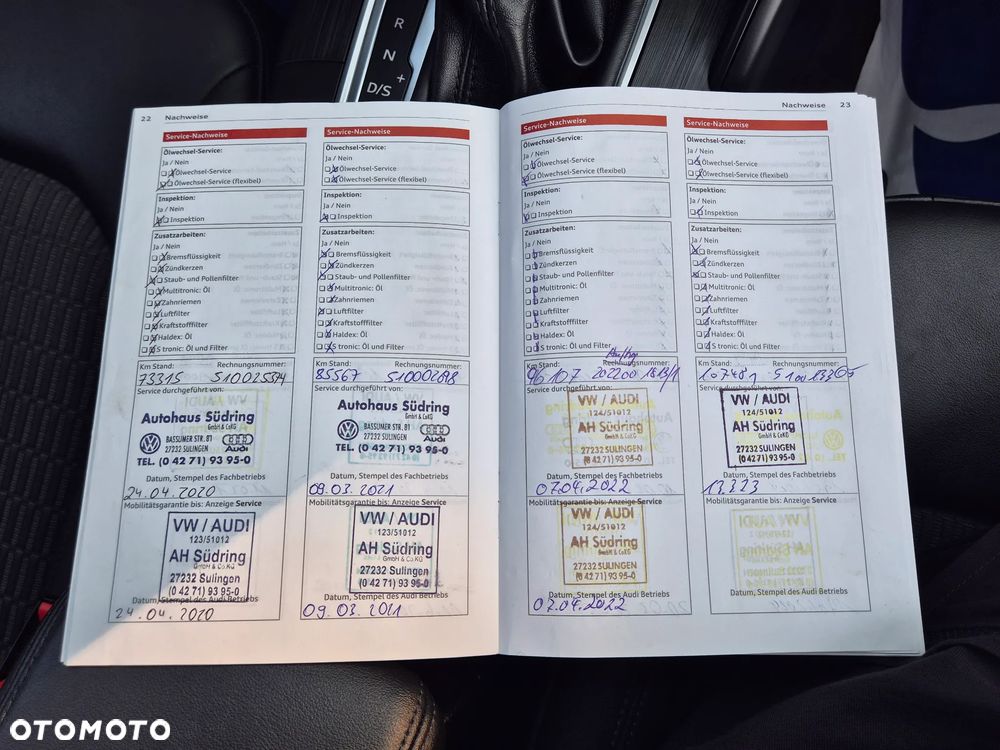 R
N
+
D/S
22 Nachweise
Service-Nachweise
Ölwechsel-Service:
Ja / Nein
Ölwechsel-Service
Ölwechsel-Service (flexibel)
Inspektion:
Ja / Nein
Inspektion
Zusatzarbeiten:
Ja / Nein
Bremsflüssigkeit
Zündkerzen
Staub- und Pollenfilter
Multitronic: Öl
Zahnriemen
Luftfilter
Kraftstofffilter
Haldex: Öl
S tronic: Öl und Filter
Km Stand: Rechnungsnummer:
73315
Service durchgeführt von:
Autohaus Südring
GmbH & CoKG
BASSUMER STR. 81
27232 SULINGEN
Audi
TEL. (0 42 71) 93 95-0
Datum, Stempel des Fachbetriebs
24.04.2020
Mobilitätsgarantie bis: Anzeige Service
VW / AUDI
123/51012
AH Südring
GmbH & Co.KG
27232 Sulingen
(0 42 71) 93 95-0
Datum, Stempel des Audi Betriebs
24.04.2020
Service-Nachweise
Ölwechsel-Service:
Ja / Nein
Ölwechsel-Service
Ölwechsel-Service (flexibel)
Inspektion:
Ja / Nein
Inspektion
Zusatzarbeiten:
Ja / Nein
Bremsflüssigkeit
Zündkerzen
Staub- und Pollenfilter
Multitronic: Öl
Zahnriemen
Luftfilter
Kraftstofffilter
Haldex: Öl
S tronic: Öl und Filter
Km Stand: Rechnungsnummer:
85567
Service durchgeführt von:
Autohaus Südring
GmbH & CoKG
BASSUMER STR. 81
27232 SULINGEN
Audi
TEL. (0 42 71) 93 95-0
Datum, Stempel des Fachbetriebs
09.03.2021
Mobilitätsgarantie bis: Anzeige Service
VW / AUDI
123/51012
AH Südring
GmbH & Co.KG
27232 Sulingen
(0 42 71) 93 95-0
Datum, Stempel des Audi Betriebs
09.03.2021
Nachweise 23
Service-Nachweise
Ölwechsel-Service:
Ja / Nein
Ölwechsel-Service
Ölwechsel-Service (flexibel)
Inspektion:
Ja / Nein
Inspektion
Zusatzarbeiten:
Ja / Nein
Bremsflüssigkeit
Zündkerzen
Staub- und Pollenfilter
Multitronic: Öl
Zahnriemen
Luftfilter
Kraftstofffilter
Haldex: Öl
S tronic: Öl und Filter
Km Stand: Rechnungsnummer:
96107
Service durchgeführt von:
VW / AUDI
124/51012
AH Südring
GmbH & CoKG
27232 SULINGEN
(0 42 71) 93 95-0
Datum, Stempel des Fachbetriebs
07.04.2022
Mobilitätsgarantie bis: Anzeige Service
VW / AUDI
124/51012
AH Südring
GmbH & CoKG
27232 SULINGEN
(0 42 71) 93 95-0
Datum, Stempel des Audi Betriebs
07.04.2022
Service-Nachweise
Ölwechsel-Service:
Ja / Nein
Ölwechsel-Service
Ölwechsel-Service (flexibel)
Inspektion:
Ja / Nein
Inspektion
Zusatzarbeiten:
Ja / Nein
Bremsflüssigkeit
Zündkerzen
Staub- und Pollenfilter
Multitronic: Öl
Zahnriemen
Luftfilter
Kraftstofffilter
Haldex: Öl
S tronic: Öl und Filter
Km Stand: Rechnungsnummer:
Service durchgeführt von:
VW / AUDI
124/51012
AH Südring
GmbH & CoKG
27232 SULINGEN
(0 42 71) 93 95-0
Datum, Stempel des Fachbetriebs
13.3.23
Mobilitätsgarantie bis: Anzeige Service
Datum, Stempel des Audi Betriebs
OTOMOTO